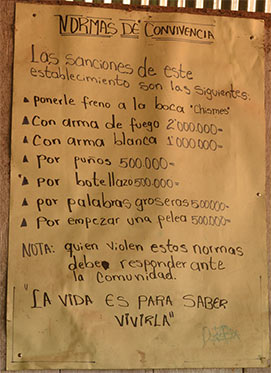 NORMAS DE CONVIVENCIA
Las sanciones de este
establecimiento son las siguientes:
ponerle freno a la boca "Chismes"
Con arma de fuego 2'000.000=
Con arma blanca 1'000.000=
Por puños 500.000=
Por botellazo 500.000=
por palabras groseras 500000=
Por empezar una pelea 500.000=
NOTA: quien violen estas normas
debe responder ante
la Comunidad.
"LA VIDA ES PARA SABER
VIVIRLA"